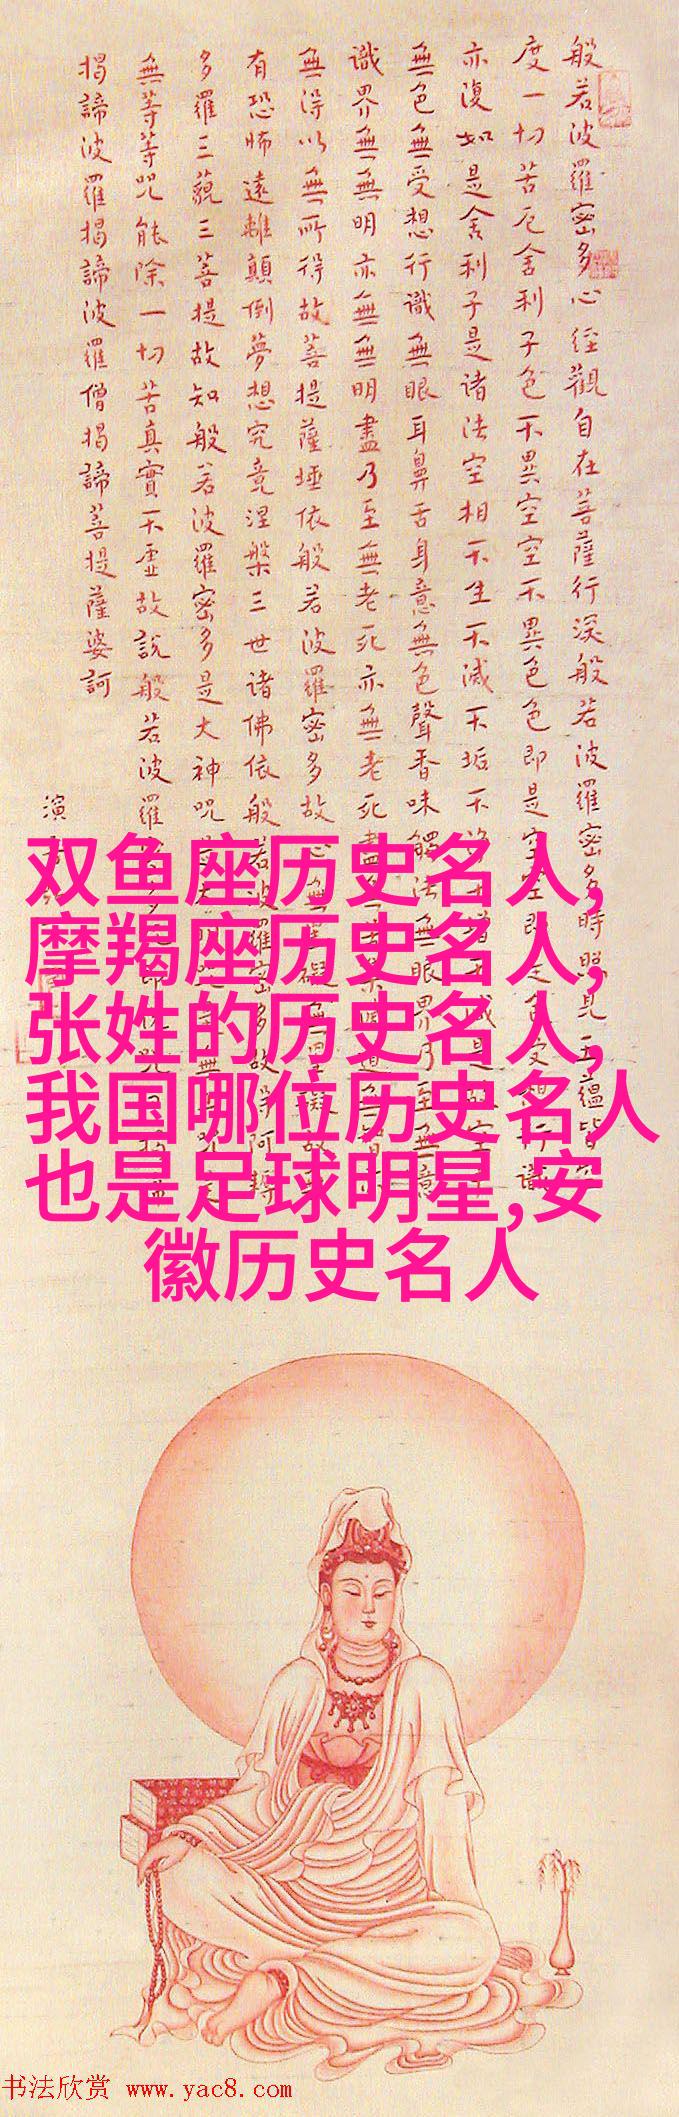 般若波羅密多心经觀自在菩薩行深般若波羅密多時照見五蘊皆
度一切苦厄舍利子色不異空空不異色色即是空空即是色受想行識
亦復如是舍利子是诸法空相不生不滅不垢不净不增不減是故空
無色無受想行識無眼耳鼻舌身意無色聲香味觸法無眼界乃至無意
識界無無明亦無無明盡乃至無老死亦無老死盡
無得以無所得故菩提薩埵依般若波羅密多故心無罣礙無罣礙故無
有恐怖遠離顛倒夢想究竟涅槃三世诸佛依般若波羅密多故得阿耨
多羅三藐三菩提故知般若波羅密多是大神咒
無等等咒能除一切苦真實不虚故說般若波羅密多
揭諦波羅揭諦波羅僧揭諦菩提薩婆訶
演
双鱼座历史名人,
摩羯座历史名人,
张姓的历史名人,
我国哪位历史名人
也是足球明星,安
徽历史名人
书法欣赏 www.yac8.com